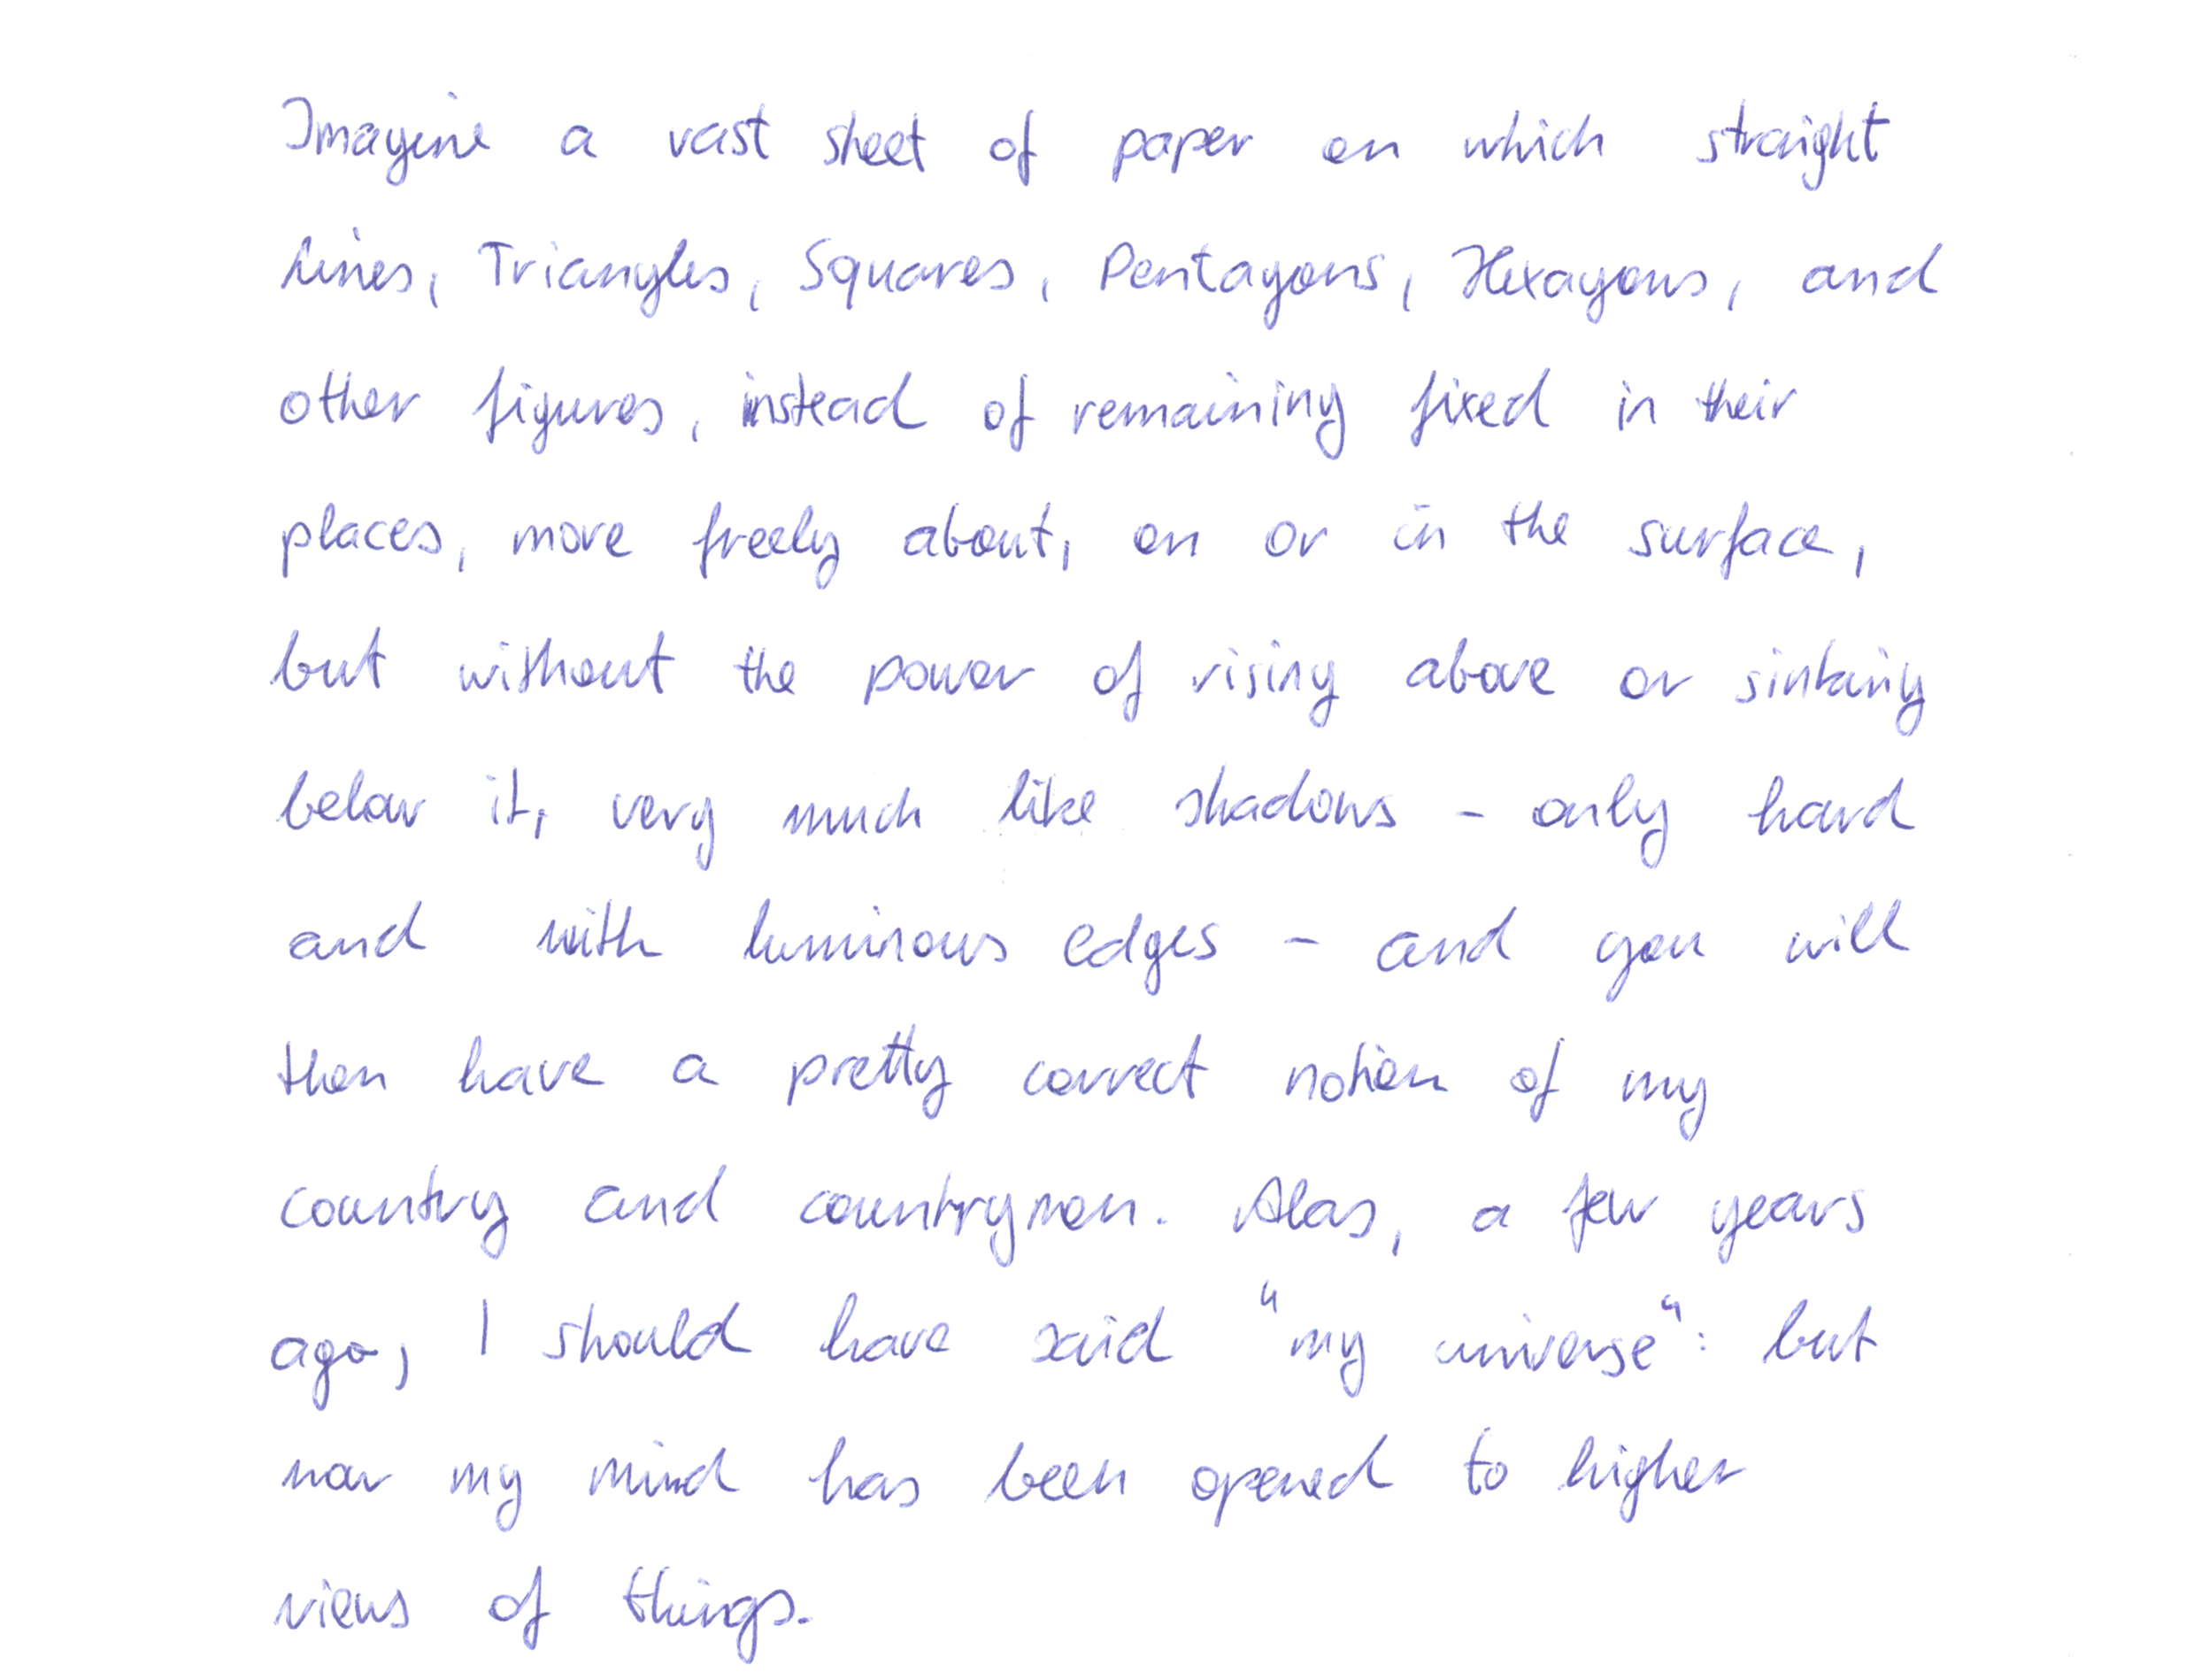 Imagine a vast sheet of paper on which straight
lines, Triangles, Squares, Pentagons, Hexagons, and
other figures, instead of remaining fixed in their
places, move freely about, on or in the surface,
but without the power of rising above or sinking
below it, very much like shadows - only hard
and with luminous edges - and you will
then have a pretty correct notion of my
country and countrymen. Alas, a few years
ago, I should have said "my universe": but
now my mind has been opened to higher
views of things.